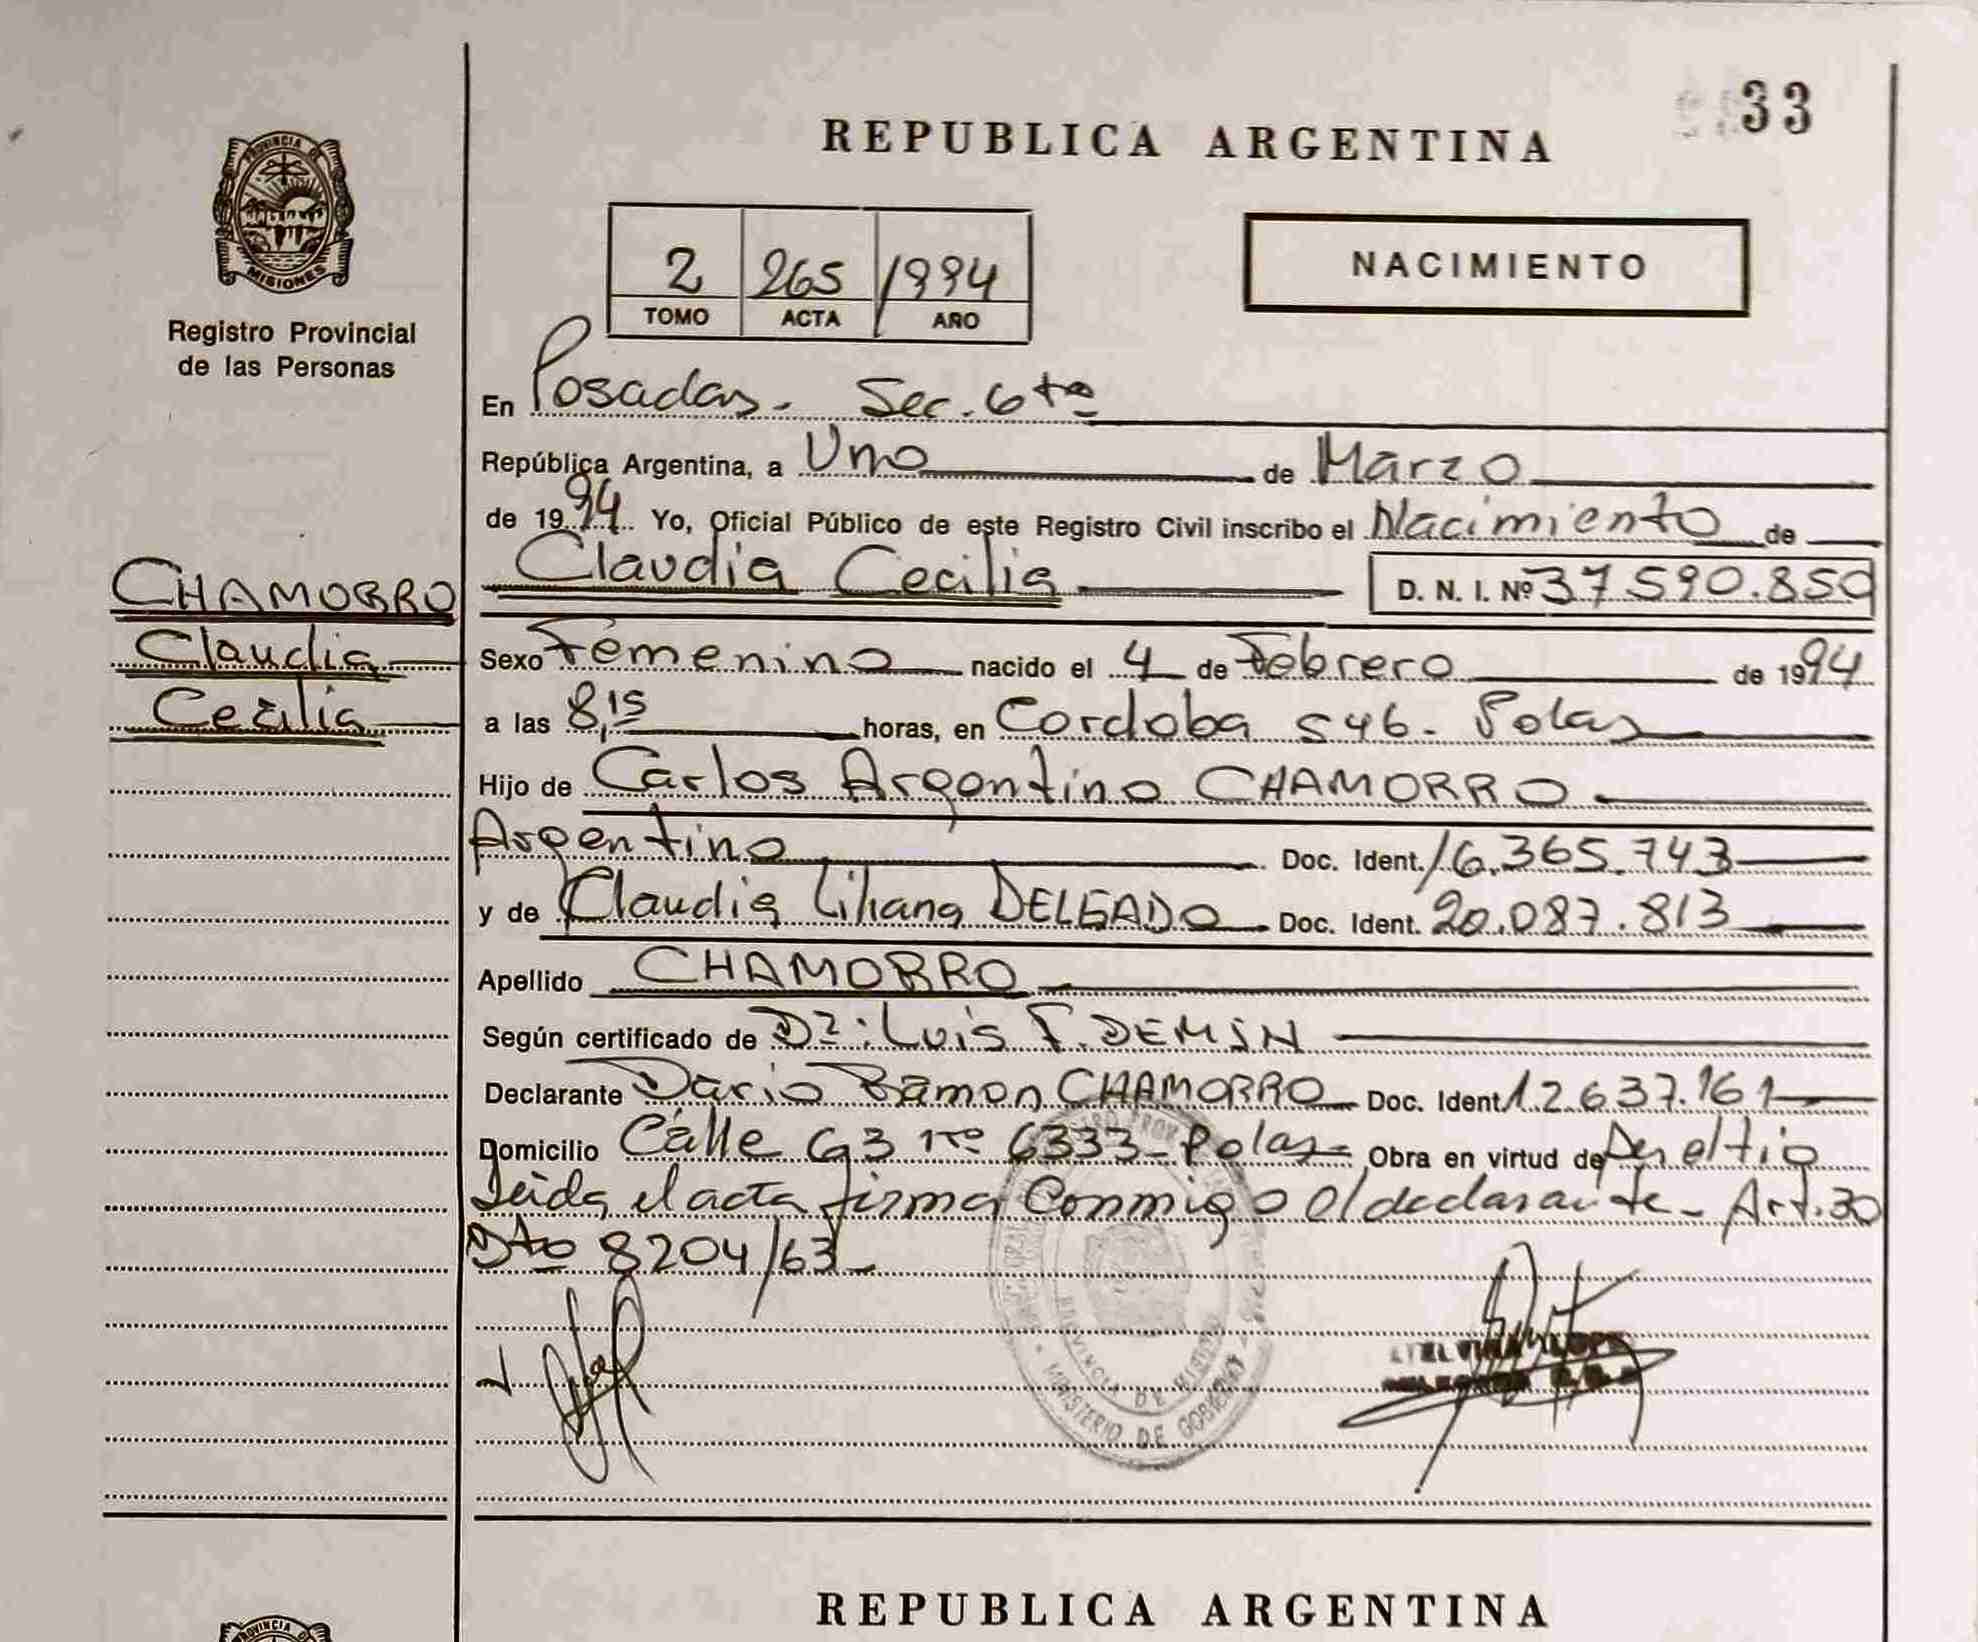 33
REPUBLICA ARGENTINA
PROVINCIA DE
MISIONES
Registro Provincial
de las Personas
2 265 1994
TOMO ACTA AÑO
NACIMIENTO
En Posadas - Sec. 6ta
República Argentina, a Uno de Marzo
de 1994 Yo, Oficial Público de este Registro Civil inscribo el Nacimiento de
Claudia Cecilia D. N. I. Nº 37 590.850
CHAMORRO
Claudia
Cecilia
Sexo Femenino nacido el 4 de Febrero de 1994
a las 8,15 horas, en Cordoba 546 - Pdas
Hijo de Carlos Argentino CHAMORRO
Argentino Doc. Ident. 16.365.743
y de Claudia Liliana DELGADO Doc. Ident. 20.087.813
Apellido CHAMORRO
Según certificado de Dr: Luis F. DEMIN
Declarante Dario Ramon CHAMORRO Doc. Ident. 12.637.161
Domicilio Calle 63 nº 6333 - Pdas - Obra en virtud de Ser el tio
Leida el acta firma Conmigo el declarante - Art. 30
Dto 8204/63 -
PROVINCIA DE MISIONES
MINISTERIO DE GOBIERNO
REPUBLICA ARGENTINA
PROVINCIA